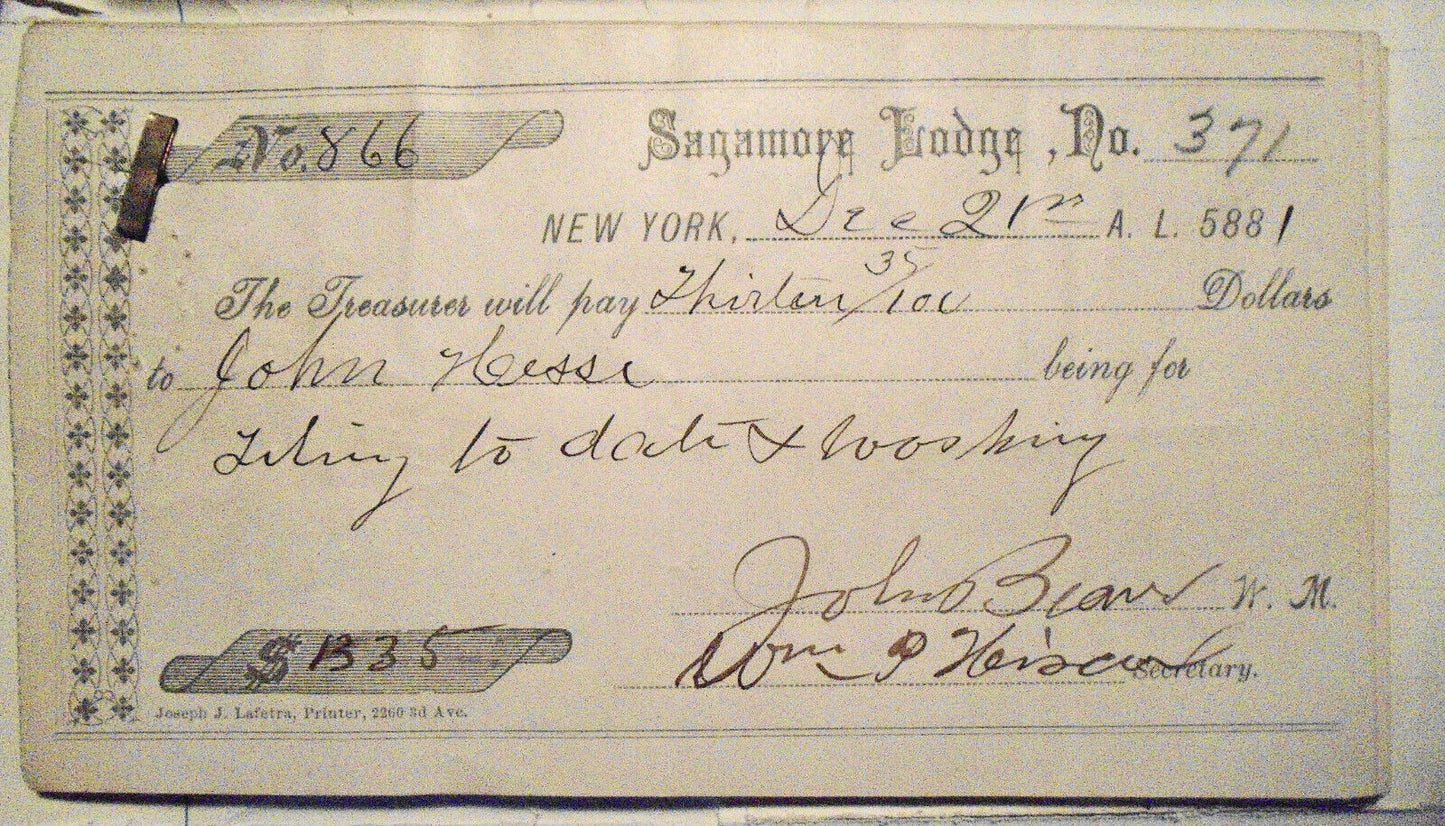 No. 866
Sagamore Lodge, No. 371
NEW YORK, Dec 21st A. L. 5881
The Treasurer will pay Thirteen 35/100 Dollars
to John Hesse being for
Tiling to date & washing
John W. M.
Wm P Secretary.
$ 1335
Joseph J. Lafetra, Printer, 2260 3d Ave.